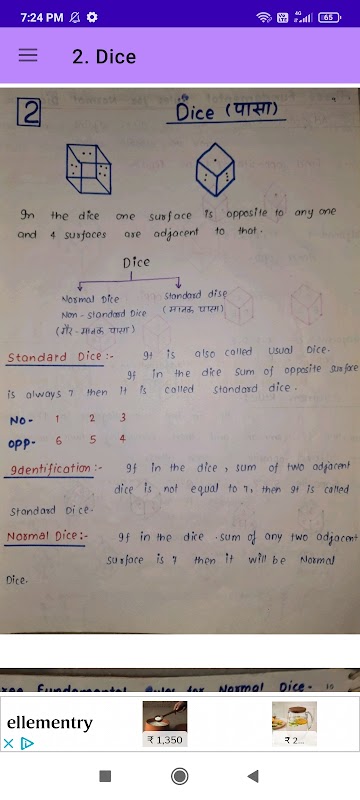 7:24 PM
4G
65
2. Dice
2
Dice (पासा)
In the dice one surface is opposite to any one
and 4 surfaces are adjacent to that.
Dice
Normal Dice
Non-standard Dice
(गैर-मानक पासा)
Standard dise
(मानक पासा)
Standard Dice:- It is also called Usual Dice.
If in the dice sum of opposite surface
is always 7 then it is called standard dice.
No- 1 2 3
opp- 6 5 4
Identification:- If in the dice, sum of two adjacent
dice is not equal to 7, then It is called
Standard Dice.
Normal Dice:- If in the dice sum of any two adjacent
surface is 7 then it will be Normal
Dice.
Fundamental Rules for Normal Dice-
ellementry
₹ 1,350
₹ 2...